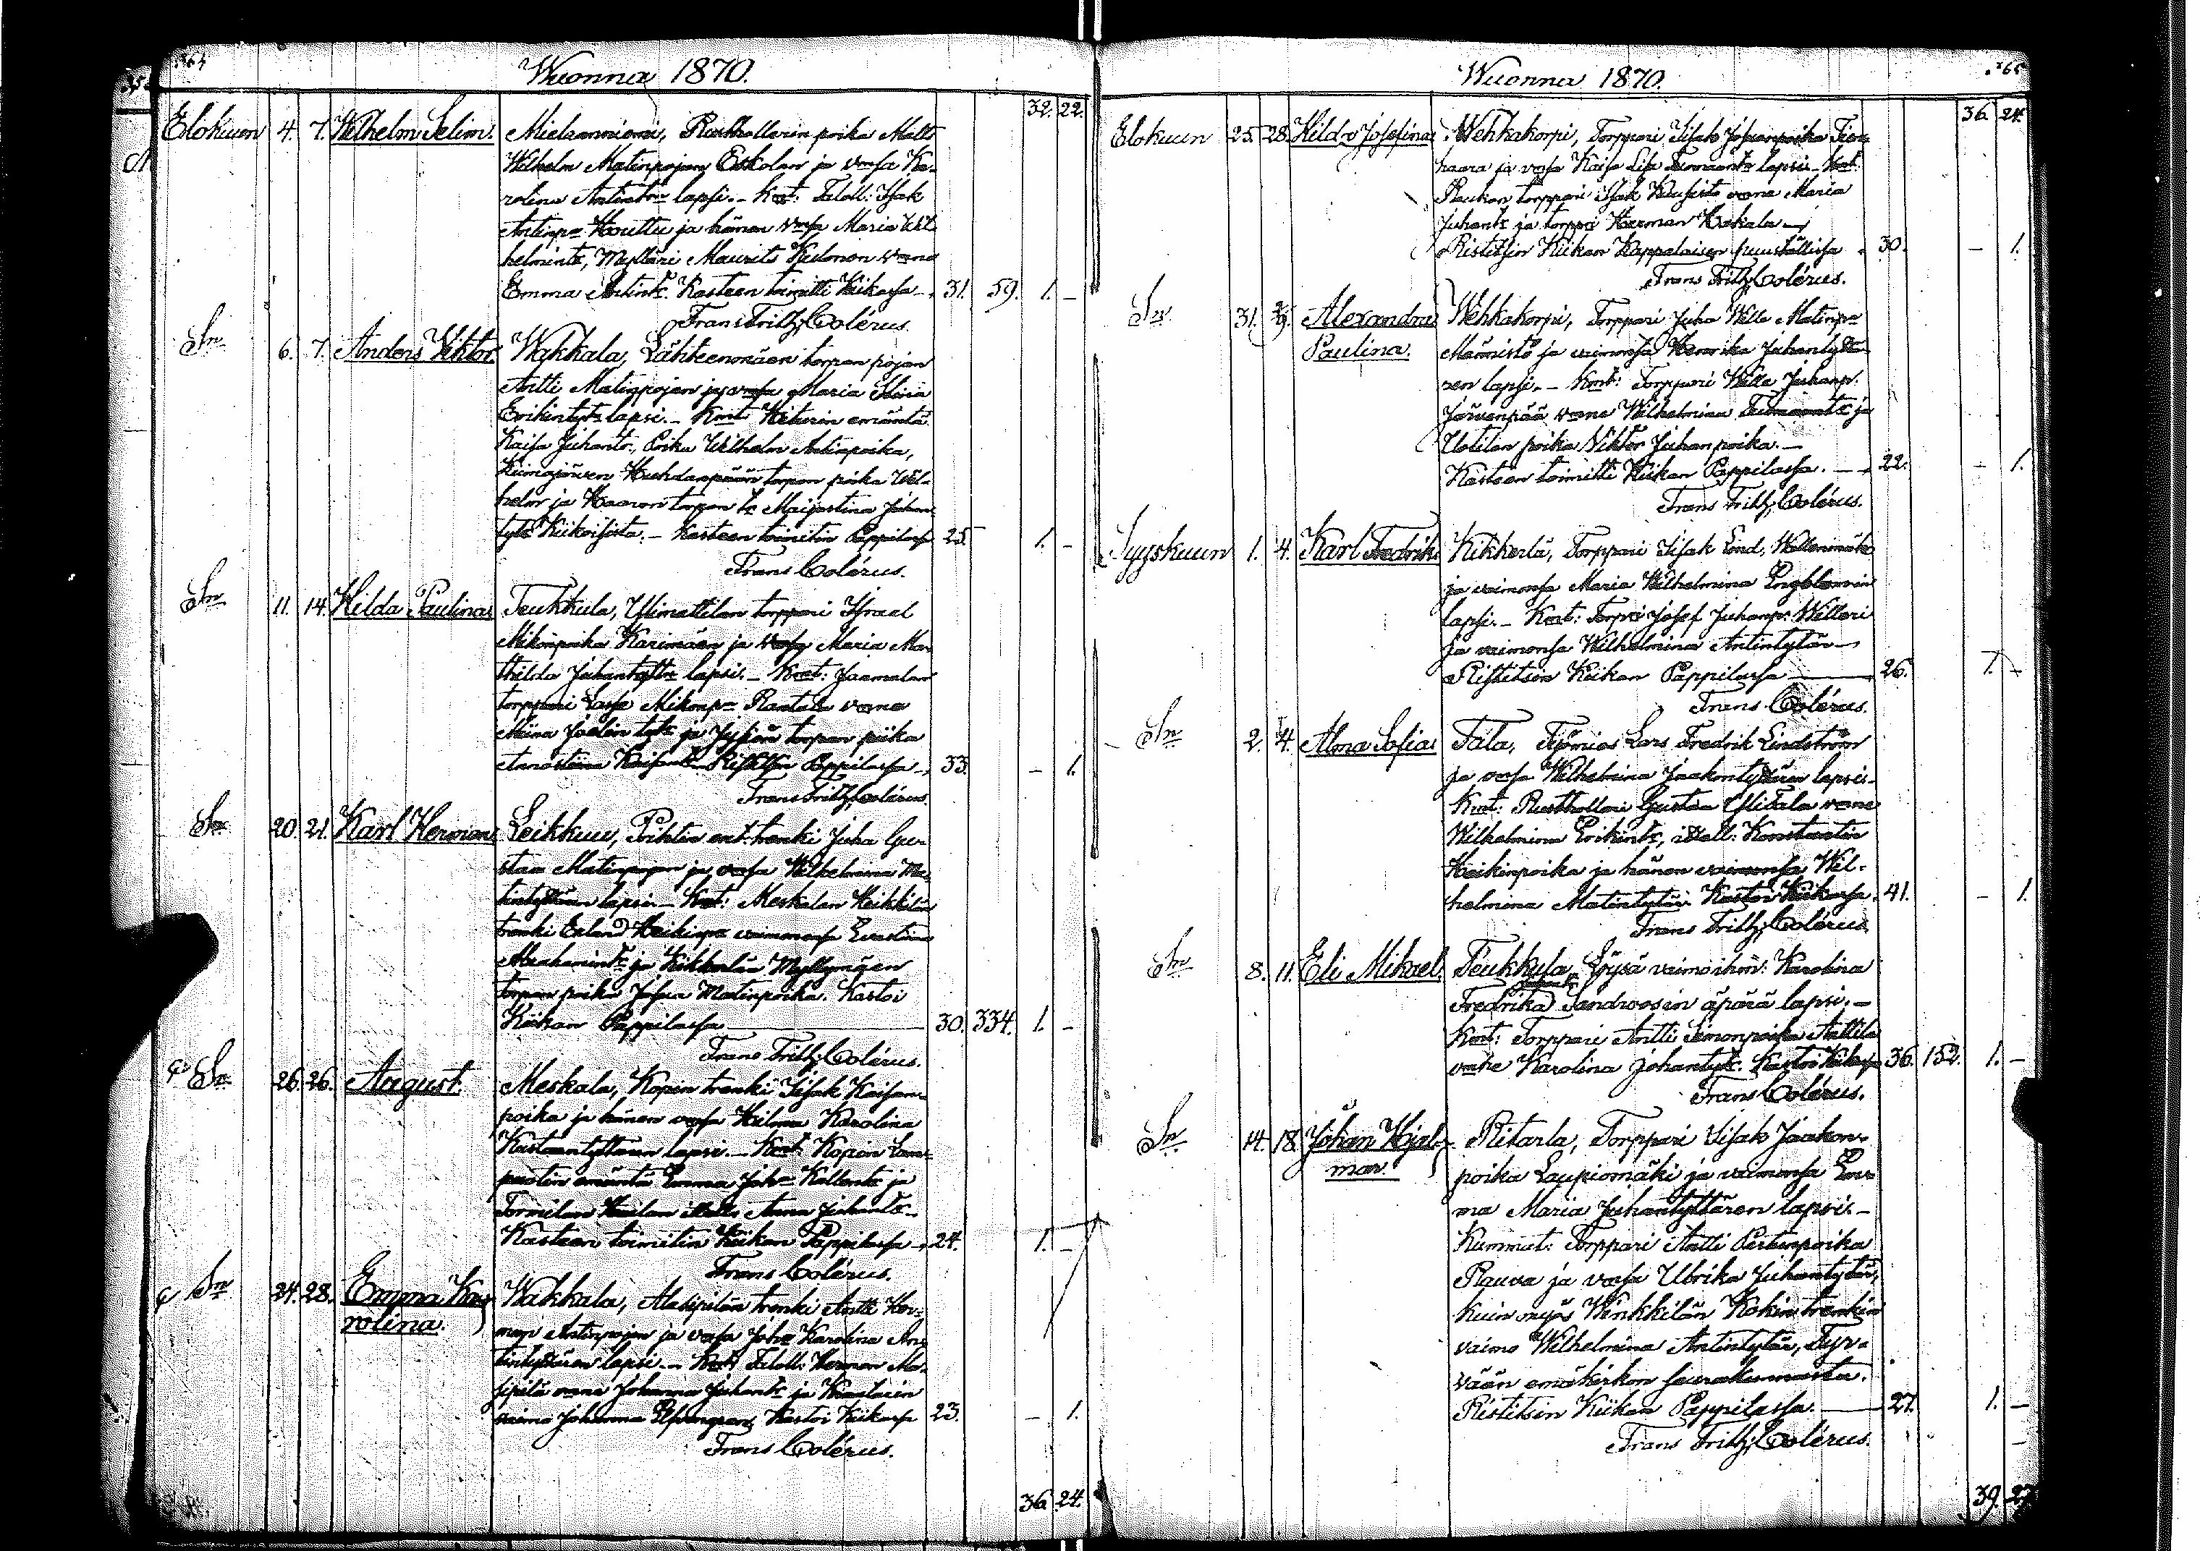 364
Wuonna 1870.
32. 22.
Elokuun 4. 7. Wilhelm Selim. Mielzenniemi, Rusthollarin poika Matts
Wilhelm Matinpojan Eskolan ja vmsa Ka-
rolina Antintr lapsi. - Kmt: Taloll: Isak
Antinp Houttu ja hänen vmsa Maria Wil
helmintr, Mylläri Maurits Kulmon vmo
Emma Antintr. Kasteen toimitti Kiikassa 31. 59. 1. -
Frans Frith. Colérus.
Sn 6. 7. Anders Viktor. Wakkala, Lähteenmäen torpan pojan
Antti Matinpojan ja vmsa Maria Stiina
Erikintytr lapsi. - Kmt Kiturin emäntä
Kaisa Juhantr, Poika Wilhelm Antinpoika,
torpan poika Wil-
helm ja Haaron torpan tr Maijastina Juhan
tytr Kiikoisista. - Kasteen toimitin Pappilassa 25. 1. -
Frans Colérus.
Sn 11. 14. Hilda Paulina. Teukkula, Ylimattilan torppari Israel
Mikonpoika Karimäen ja vmsa Maria Ma-
thilda Juhantyttr lapsi. - Kmt: Jaamalan
torppari Lasse Mikonp Rantala vmo
Miina Joelin tytr ja torpan poika
Ristitsin Pappilassa 33. - 1.
Frans Frith. Colérus.
Sn 20. 21. Karl Herman Leikkuu, Prihtin ent. trenki Juha Gus-
staa Matinpojan ja vmsa Wilhelmina Ma-
tintyttären lapsi. - Kmt: Meskalan Heikkilän
trenki Erland Heikinpn vaimonsa Evastiina
Abrahamintr ja Kikkerlän Myllymäen
torpan poika Josua Matinpoika. Kastoi
Kiikan Pappilassa 30. 334. 1. -
Frans Frith. Colérus.
Sn 26. 26. August. Meskala, Kopin trenki Iisak Kaisan-
poika ja hänen vmsa Hilma Karolina
Kustaantyttären lapsi. - Kmt: Kopin Lam-
puotin emäntä Emma Joh Kallentr ja
Tormilan Anna Juhantr -
Kasteen toimitin Kiikan Pappilassa 24. 1. -
Frans Colérus.
Sn 24. 28. Emma Ka- Wakkala, Alasipilän trenki Antti Her-
rolina. man Antinpojan ja vmsa Joh Karolina An-
tintyttären lapsi. - Kmt Taloll: Herman Ala-
sipilä vmo Johanna Juhantr ja Kraatarin
vaimo Johanna Kastoi Kiikassa 23. - 1.
Frans Colérus.
36. 24.
365
Wuonna 1870.
36. 24.
Elokuun 25. 28. Hilda Josefina. Wehkakorpi, Torppari Iisak Josuanpoika Tien-
haara ja vmsa Kaisa Lisa Tuomaantr lapsi. Kmt:
Raukon torppari Isak vmo Maria
Juhantr ja torppri Herman Koskela -
Ristitsin Kiikan Kappalaisen puustellissa 30. - 1.
Frans Frith. Colérus.
Sn 31. 4/9. Alexandra Wehkakorpi, Torppari Juha Wille Matinpn
Paulina. Männistö ja vaimonsa Henrika Juhantyttä-
ren lapsi. - Kmt: Torppari Kalle Juhanp.
Järvenpää vmo Wilhelmina Tuomaantr ja
Uotilan poika Viktor Juhanpoika. -
Kasteen toimitti Kiikan Pappilassa. - 22. - 1.
Frans Frith. Colérus.
Syyskuun 1. 4. Karl Fredrik Kikkerlä, Torppari Iisak Lind,
ja vaimonsa Maria Wilhelmina Engblomin
lapsi. - Kmt: Torpri Josef Juhanp: Willari
ja vaimonsa Wilhelmina Antintytär -
Ristitsin Kiikan Pappilassa 26. 1. -
Frans Colérus.
Sn 2. 4. Alma Sofia. Tala, Lars Fredrik Lindström
ja vmsa Wilhelmina Jaakontyttären lapsi.
Kmt: Rusthollari Gustaa Ylitala vmo
Wilhelmina Erikintr, itsell: Konstantin
Heikinpoika ja hänen vaimonsa Wil-
helmina Matintytär. Kastoi Kiikassa 41. - 1.
Frans Frith. Colérus.
Sn 8. 11. Eli Mikael. Teukkula, Löysä vaimoihm: Karolina
Fredrika Sandroosin äpärä lapsi. -
Kmt: Torppari Antti Simonpoika Anttila
vmo Karolina Johantytr. Kastoi 36. 152. 1. -
Frans Colérus.
Sn. 14. 18. Johan Hjal- Ritarla, Torppari Iisak Jaakon-
mar. poika Laupiomäki ja vaimonsa Em-
ma Maria Juhantyttären lapsi. -
Kummit: Torppari Antti Pertunpoika
Rauva ja vmsa Ulrika Juhantytär,
kuin myös Kinkkilän Kokin trenkin
vaimo Wilhelmina Antintytär, Tyr-
vään emäkirkon seurakunnasta.
Ristitsin Kiikan Pappilassa. 27. 1. -
Frans Frith. Colérus.
39. 27.